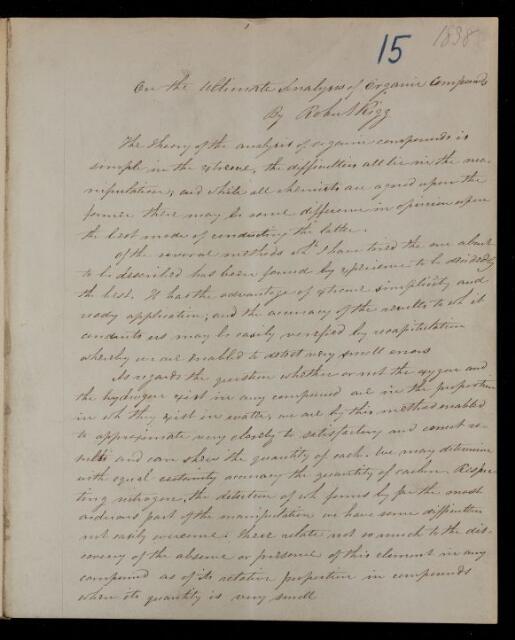 15
1838
On the Ultimate Analysis of Organic Compounds
By Robert Rigg
The theory of the analysis of organic compounds is
simple in the xtreme, the difficulties all lie in the ma-
nipulation; and while all chemists are agreed upon the
former there may be some difference in opinion upon
the best mode of conducting the latter.
Of the several methods wh I have tried the one about
to be described has been found by xperience to be decidedly
the best. It has the advantage of xtreme simplicity and
ready application; and the accuracy of the results to wh it
conducts us may be easily verified by recapitulation
whereby we are enabled to detect very small errors
As regards the question whether or not the oxygen and
the hydrogen xist in any compound are in the proportion
in wh they xist in water, we are by this method enabled
to approximate very closely to satisfactory and correct re-
sults and can shew the quantity of each. We may determine
with equal certainty accuracy the quantity of carbon. Respec-
ting nitrogen, the detection of wh forms by far the most
arduous part of the manipulation we have some difficulties
not easily overcome: these relate not so much to the dis-
covery of the absence or presence of this element in any
compound as of its relative proportion in compounds
when its quantity is very small